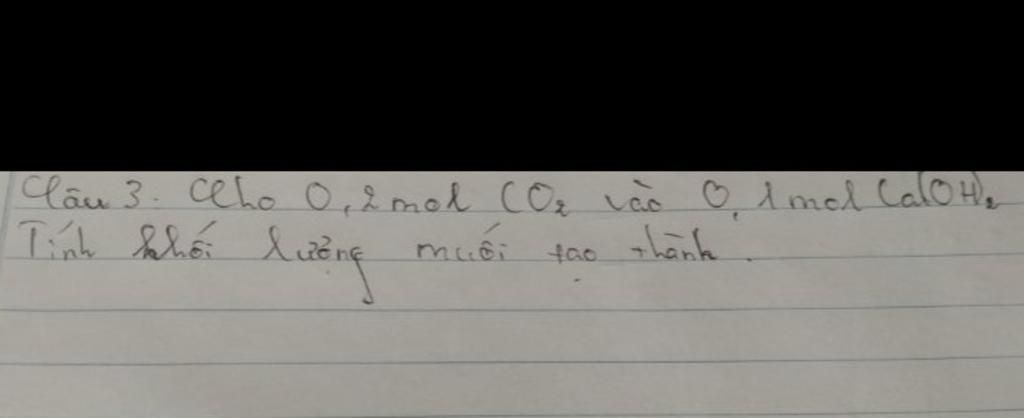 Câu 3. Cho 0,2 mol CO₂ vào 0,1 mol Ca(OH)₂
Tính khối lượng muối tạo thành.